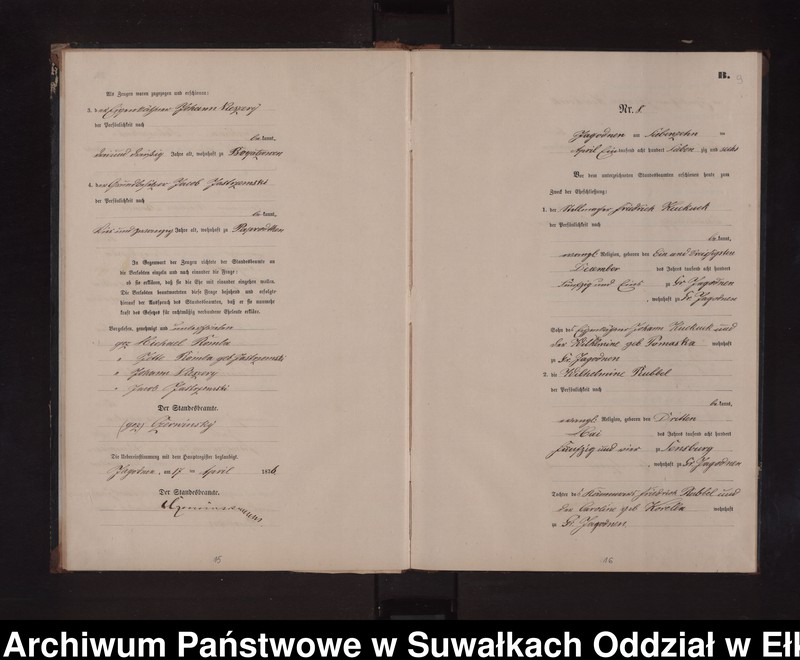 Als Zeugen waren zugezogen und erschienen:
3. der Eigenkäthner Johann
der Persönlichkeit nach
be kannt,
dreiund dreißig Jahre alt, wohnhaft zu
4. der Grundbesitzer Jacob Jastzemski
der Persönlichkeit nach
be kannt,
und zwanzig Jahre alt, wohnhaft zu
In Gegenwart der Zeugen richtete der Standesbeamte an
die Verlobten einzeln und nach einander die Frage:
ob sie erklären, daß sie die Ehe mit einander eingehen wollen.
Die Verlobten beantworteten diese Frage bejahend und erfolgte
hierauf der Ausspruch des Standesbeamten, daß er sie nunmehr
kraft des Gesetzes für rechtmäßig verbundene Eheleute erkläre.
Vorgelesen, genehmigt und unterschrieben
gez Michael Romba
" Romba geb Jastzemski
" Johann
" Jacob Jastzemski
Der Standesbeamte.
(gez) Czerwinsky
Die Uebereinstimmung mit dem Hauptregister beglaubigt.
Jagodnen, am 17 ten April 1876
Der Standesbeamte.
Czerwinski
15
B.
9
Nr. 8
Jagodnen am siebenzehn ten
April Ein tausend acht hundert sieben zig und sechs
Vor dem unterzeichneten Standesbeamten erschienen heute zum
Zweck der Eheschließung:
1. der Friedrich Kuckuck
der Persönlichkeit nach
be kannt,
evangl. Religion, geboren den Ein und dreißigsten
December des Jahres tausend acht hundert
fünfzig und Eins zu Gr Jagodnen
, wohnhaft zu Gr. Jagodnen
Sohn des Eigenkäthner Johann Kuckuck und
der Wilhelmine geb Pomaska wohnhaft
zu Gr. Jagodnen
2. die Wilhelmine Rubbel
der Persönlichkeit nach
be kannt,
evangl. Religion, geboren den Dritten
Mai des Jahres tausend acht hundert
fünfzig und vier zu Sensburg
, wohnhaft zu Gr Jagodnen
Tochter des Friedrich Rubbel und
der Caroline geb Korella wohnhaft
zu Gr. Jagodnen.
16
Archiwum Państwowe w Suwałkach Oddział w Ełk